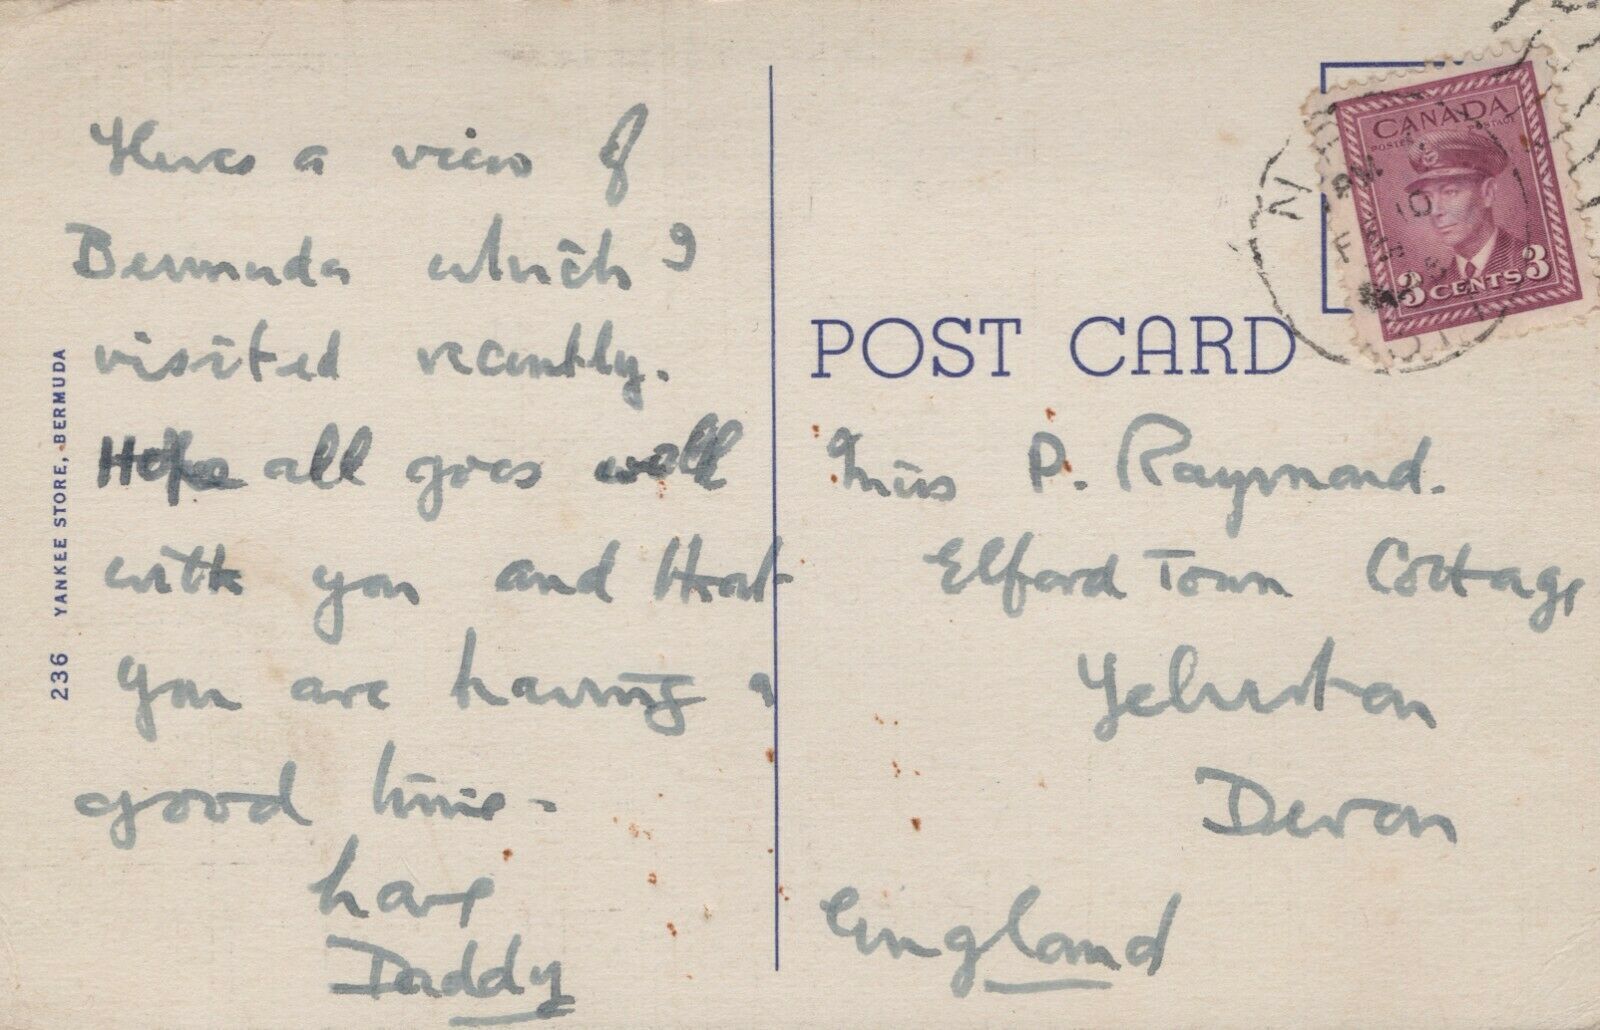 Heres a view of
Bermuda which I
visited recently.
Hope all goes well
with you and that
you are having a
good time -
Love
Daddy
236 YANKEE STORE, BERMUDA
POST CARD
CANADA
POSTES POSTAGE
3 CENTS 3
Miss P. Raymond.
Elford Town Cottage,
Yelverton
Devon
England